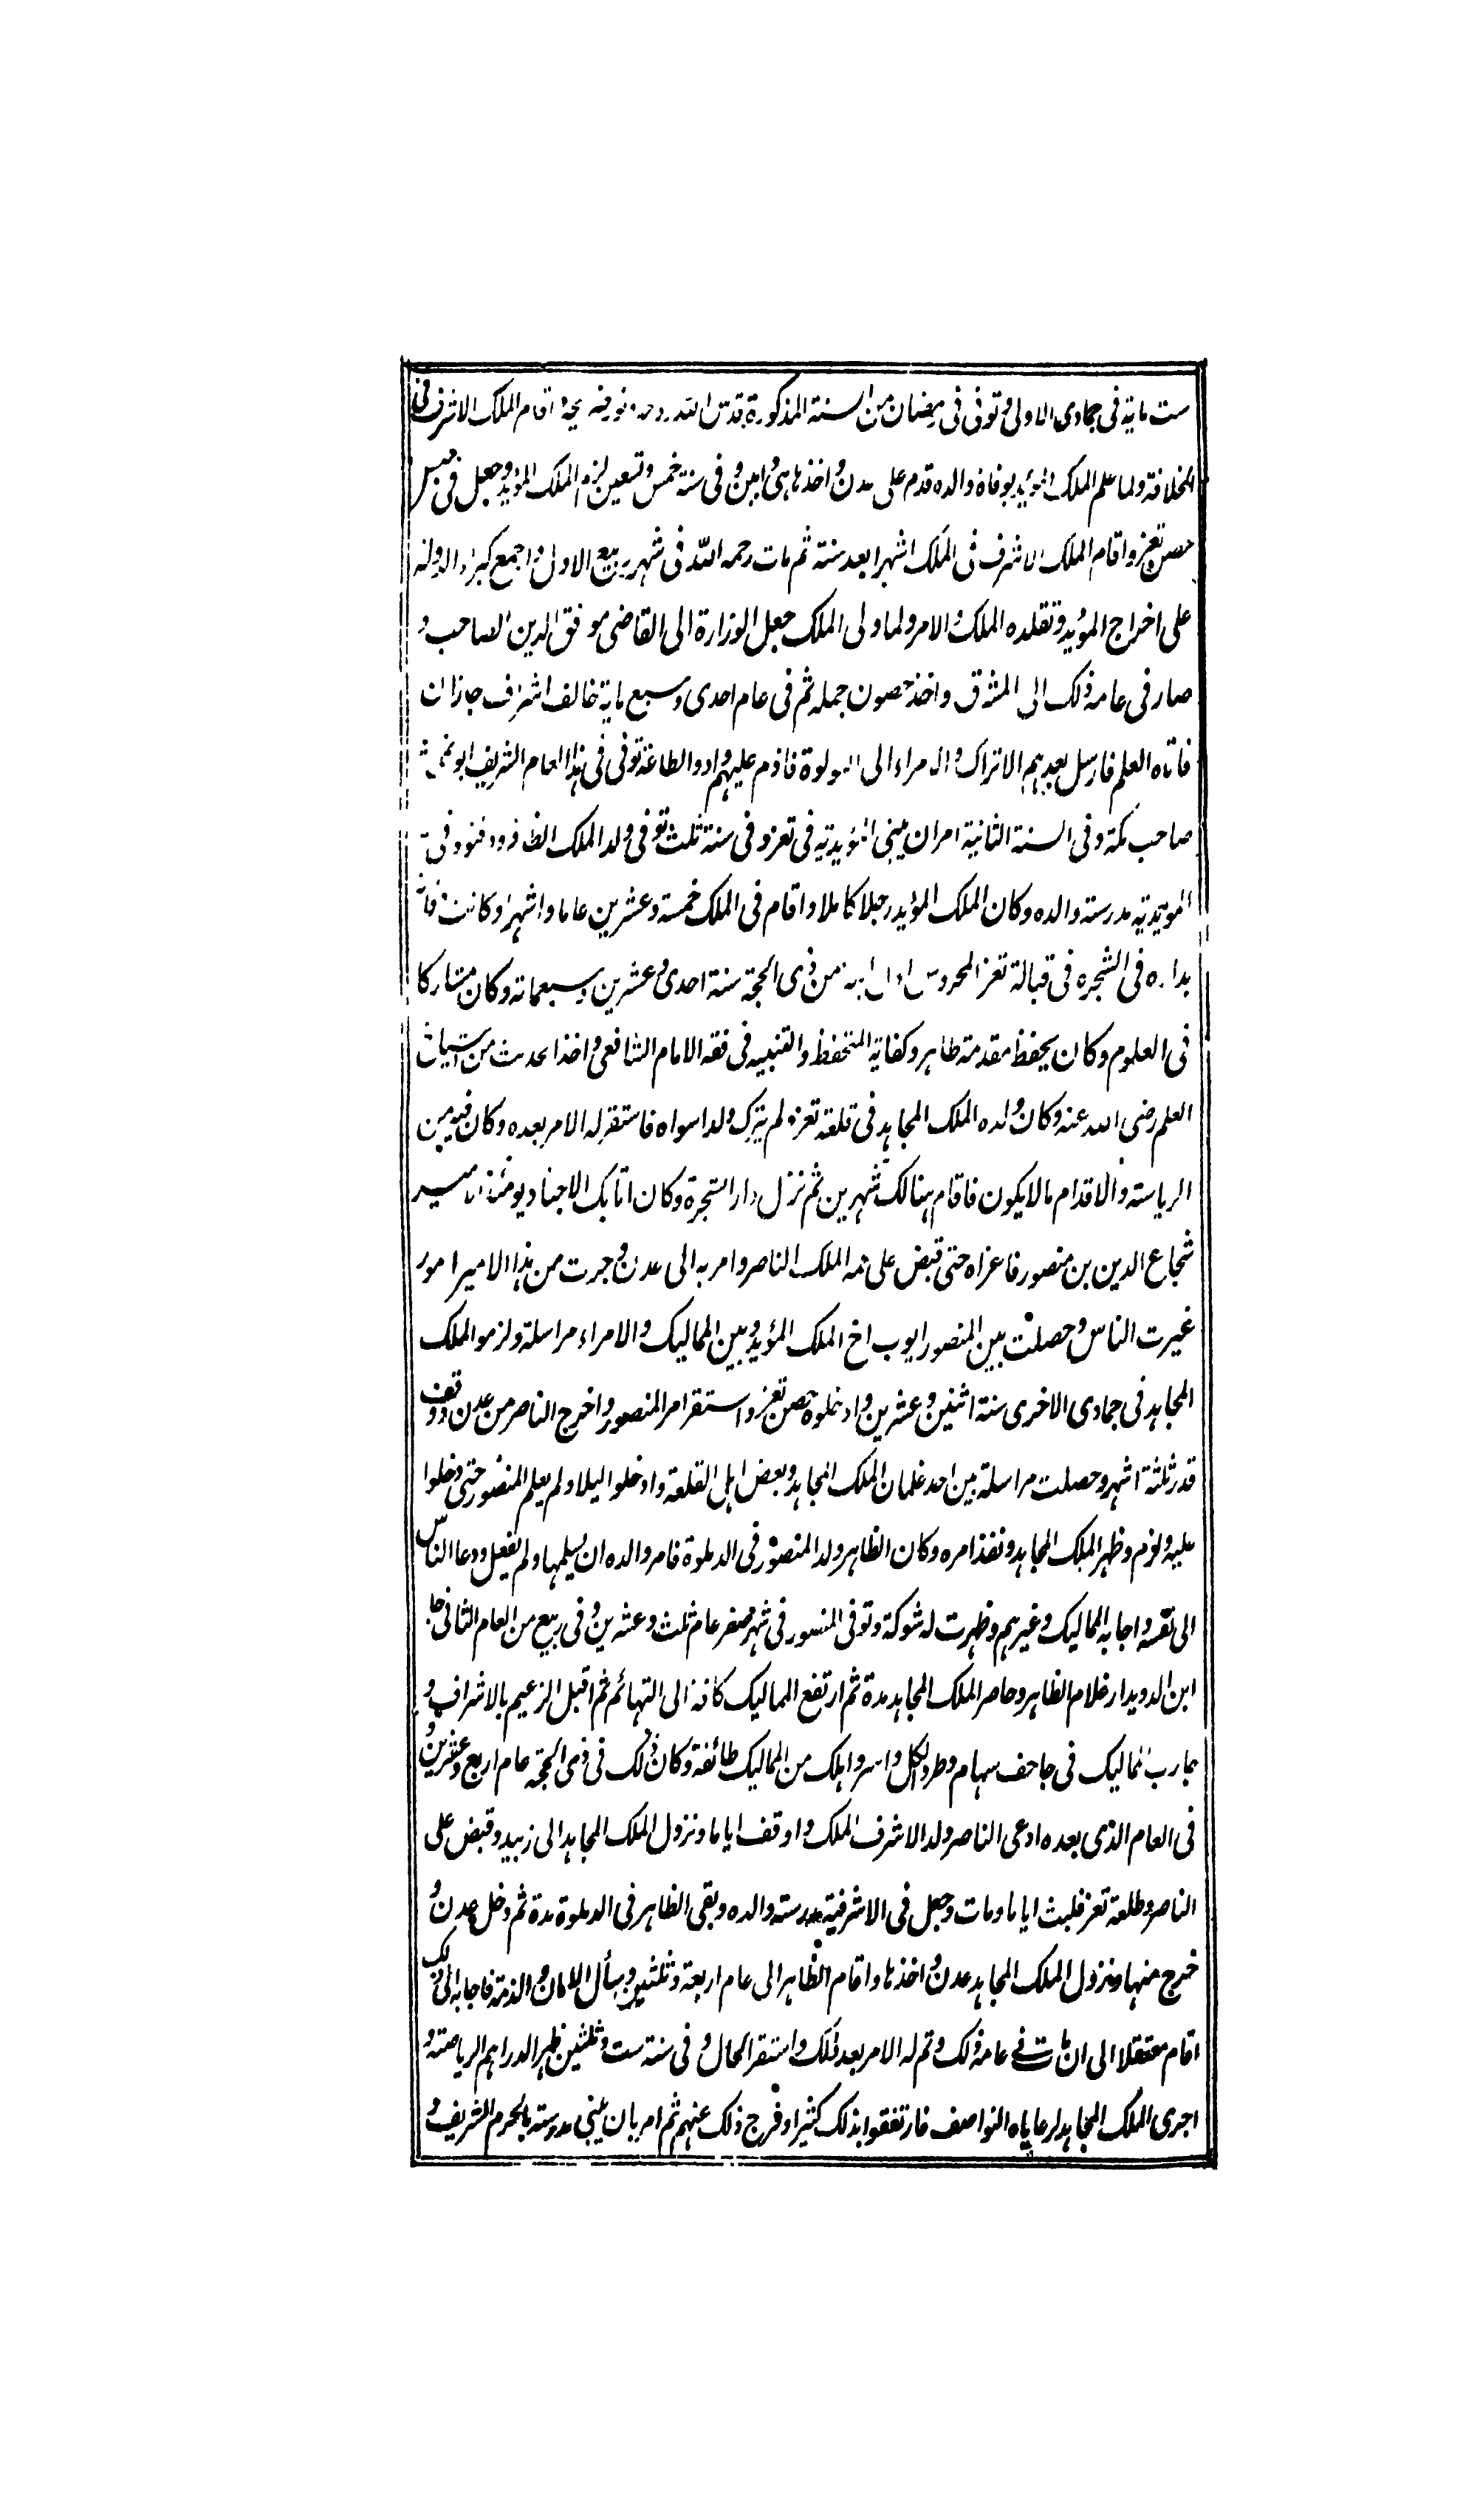 ست ماية فى جمادى الاولى وتوفى فى رمضان من السنة المذكورة قدس الله روحه ونور ضريحه واقام الملك الاشرف فى
الخلافة ولما علم الملك المؤيد بوفاة والده قدم على عدن واخذها هى وابين وفى سنة خمس وتسعين لزم الملك المؤيد وجعل فى حبس
حصن تعز واقام الملك الاشرف فى الملك اشهرا بعد سنة ثم مات رحمه الله فى شهر ربيع الاول واجمع كبراء الدولة
على اخراج المؤيد وتقلده الملك والامر ولما ولى الملك جعل الوزارة الى القاضى موفق الدين الصاحب و
صار فى عامه ذلك الى المشرق واخذ حصون جمله ثم فى عام احدى وسبع ماية خالف اشراف جازان
فاتاه العلم فارسل بعدهم الاتراك والامراء الى فاذم عليهم وادوا الطاعة توفى فى هذا العام الشريف ابو نمى
صاحب مكة وفى السنة الثانية امر ان يبنى المؤيدية فى تعز وفى سنة ثلث توفى ولد الملك الظافر ودفنوه فى
المؤيدية مدرسة والده وكان الملك المؤيد رجلا كاملا واقام فى الملك خمسة وعشرين عاما واشهرا وكانت وفاته
بداره فى الشجره فى قبالة تعز المحروس من ذى الحجة سنة احدى وعشرين وسبعماته وكان مشاركا
فى العلوم وكان يحفظ مقدمة طاهر وكفاية المتحفظ والتنبيه فى فقه الامام الشافعى واخذ الحديث من اشياخ
العلم رضى الله عنه وكان ولده الملك المجاهد فى قلعة تعز ولم يترك ولدا سواه فاستقر له الامر بعده وكان فيه من
الرياسته والاقدام مالا يكون فاقام هنالك شهرين ثم نزل دار الشجرة وكان اتابك الاجناد يومئذ الامير
شجاع الدين بن منصور فاغراه حتى قبض على عمه الملك الناصر وامر به الى عدن وجرت من هذا الامير امور
غيرت الناس وحصلت بين المنصور ايوب اخ الملك المؤيد وبين المماليك والامراء مراسلة ولزموا الملك
المجاهد فى جمادى الاخرى سنة اثنين وعشرين وادخلوه حصن تعز واستقر امر المنصور واخرج الناصر من عدن ووقف
قدر ثلثة اشهر وحصلت مراسلة بين احد غلمان الملك المجاهد وبعض اهل القلعة وادخلوا ليلا ولم يعلم المنصور حتى دخلوا
عليه ولزم وظهر الملك المجاهد ونفذ امره وكان الظاهر ولد المنصور فى الدملوة فامر والده ان يسلمها ولم يفعل ودعا الناس
الى نفسه واجابه المماليك وغيرهم وظهرت له شوكة وتوفى المنصور فى شهر صفر عام ثلث وعشرين وفى ربيع من العام الثانى جا
ابن الدويدار غلام الظاهر وحاصر الملك المجاهد مدة ثم ارتفع المماليك كافة الى التهائم ثم اقبل الزعيم بالاشراف و
حارب المماليك فى جاحف سهام وطرد الكل واسر واهلك من المماليك طائفة وكان ذلك فى ذى الحجة عام اربع وعشرين و
فى العام الذى بعده ادعى الناصر ولد الاشرف الملك واوقف اياما ونزول الملك المجاهد الى زبيد وقبض على
الناصر وطلعة تعز فلبث اياما ومات وجعل فى الاشرفية مدرسته والده وبقى الظاهر فى الدملوة مدة ثم دخل عدن و
خرج منها ونزول الملك المجاهد عدن واخذها واقام الظاهر الى عام اربعة وثلثين وسأل الامان والذمة فاجابه الى ذلك
اقام معتقلا الى ان مات فى عامه ذلك وتم له الامر بعد ذلك واستقر الحال و فى سنة ست وثلثين ظهر الدراهم الرياضة و
اجرى الملك المجاهد لرعاياه النواصف فارتفقوا بذلك كثيرا وفرج ذلك عنهم ثم امر بان يبنى مدرسته بالحرم الشريف و